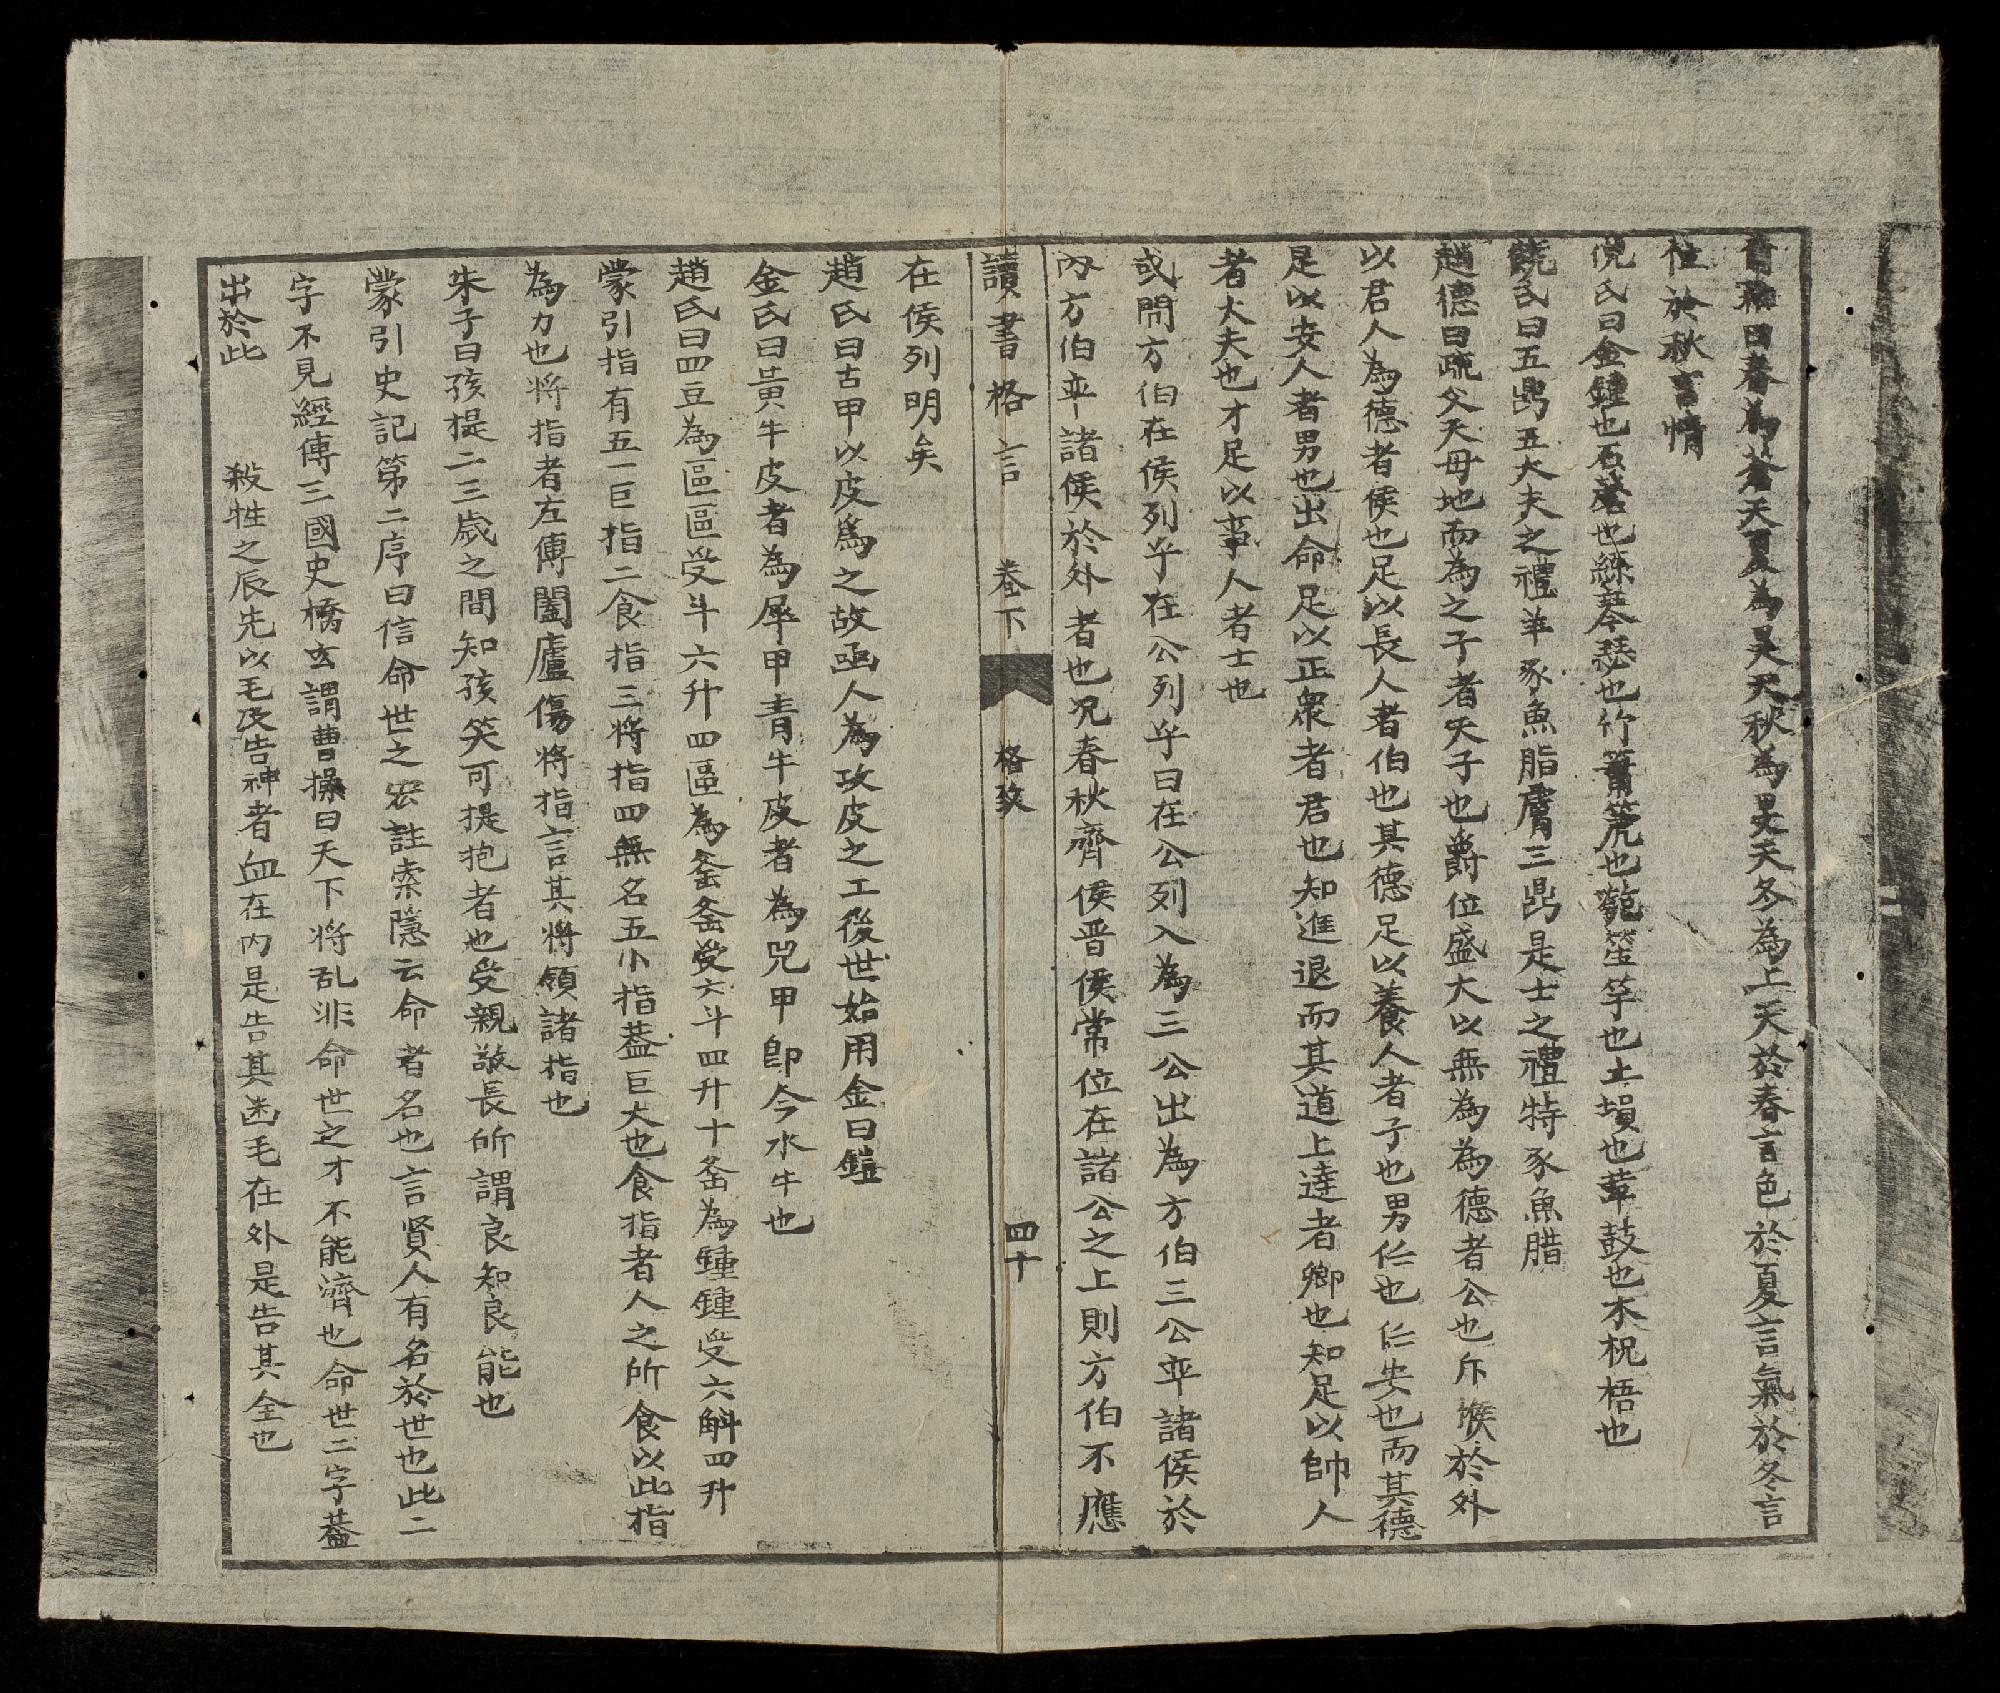 爾雅曰春為蒼天夏為昊天秋為旻天冬為上天於春言色於夏言氣於冬言
位於秋言情
倪氏曰金鐘也石磬也絲琴瑟也竹簫箎也匏笙竽也土塤也革鼓也木柷梧也
饒氏曰五鼎五大夫之禮羊豕魚脂膚三鼎是士之禮特豕魚腊
趙德曰疏父天母地而為之子者天子也爵位盛大以無為為德者公也斥堠於外
以君人為德者侯也足以長人者伯也其德足以養人者子也男任也任安也而其德
足以安人者男也出命足以正衆者君也知進退而其道上達者卿也知足以帥人
者大夫也才足以事人者士也
或問方伯在侯列乎在公列乎曰在公列入為三公出為方伯三公平諸侯於
內方伯平諸侯於外者也况春秋齊侯晋侯常位在諸公之上則方伯不應
讀書格言 卷下 格致 四十
在侯列明矣
趙氏曰古甲以皮爲之故函人為攻皮之工後世始用金曰鎧
金氏曰黃牛皮者為犀甲青牛皮者為兕甲即今水牛也
趙氏曰四豆為區區受斗六升四區為釜釜受六斗四升十釜為鍾鍾受六斛四升
蒙引指有五一巨指二食指三將指四無名五小指盖巨大也食指者人之所食以此指
為力也將指者左傳闔廬傷將指言其將領諸指也
朱子曰孩提二三歲之間知孩笑可提抱者也受親敬長所謂良知良能也
蒙引史記第二序曰信命世之宏註索隱云命者名也言賢人有名於世也此二
字不見經傳三國史橋玄謂曹操曰天下將乱非命世之才不能濟也命世二字盖
出於此 殺牲之辰先以毛及告神者血在內是告其凼毛在外是告其全也